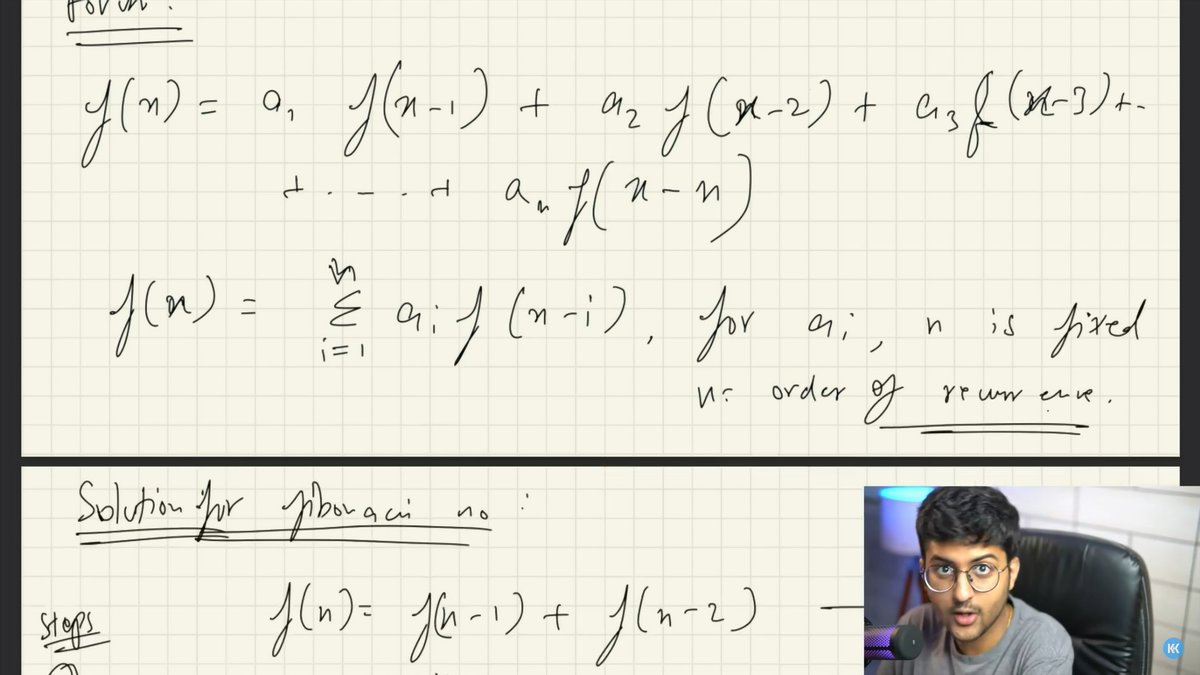 Form :
f(x) = a₁ f(x-1) + a₂ f(x-2) + a₃ f(x-3) + ..
+ . - . + aₙ f(x-n)
f(x) = Σ_{i=1}^{n} aᵢ f(x-i), for aᵢ, n is fixed
n= order of recurrence.
Solution for fibonacci no :
f(n)= f(n-1) + f(n-2) —
steps
K